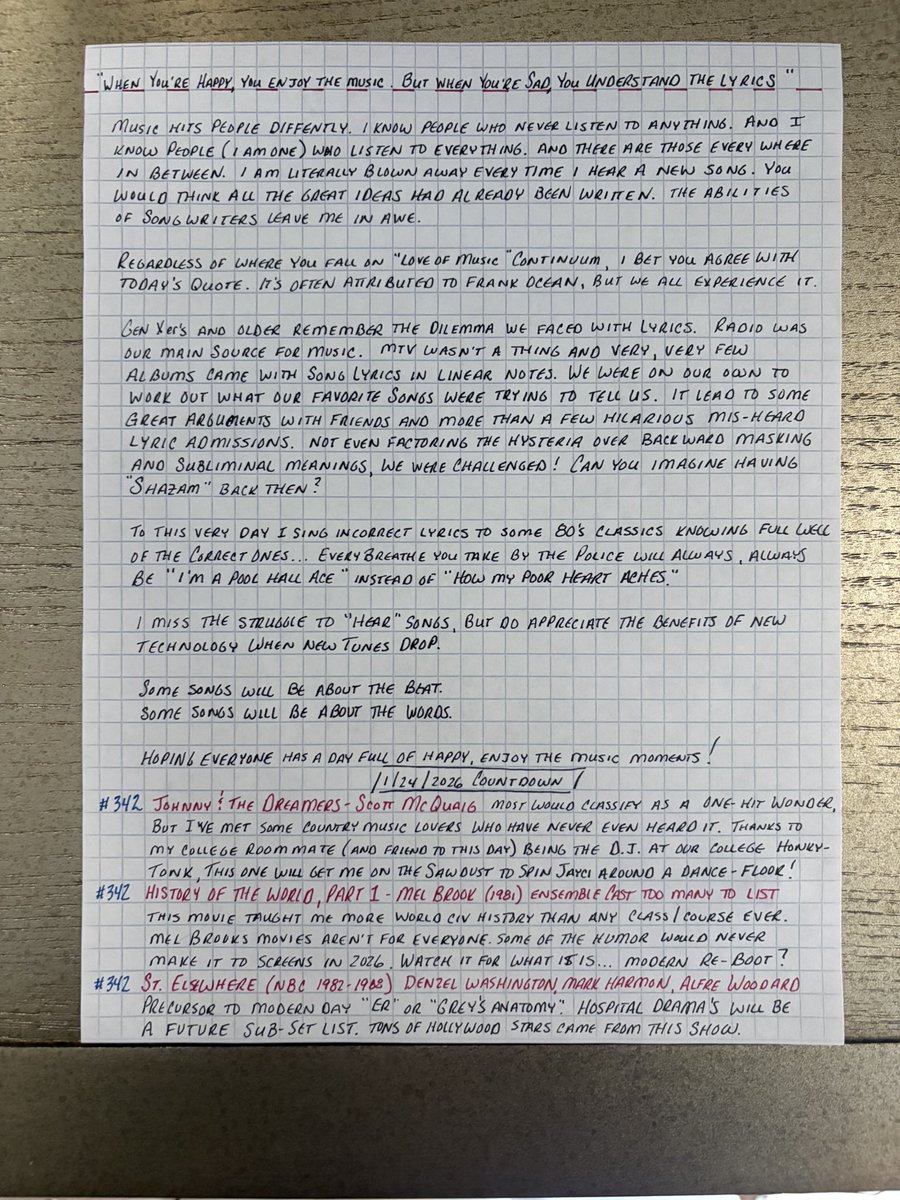 "When You're Happy, You Enjoy the music. But when You're Sad, You Understand the Lyrics"
Music hits people diffently. I know people who never listen to anything. And I
know people (I am one) who listen to everything. And there are those every where
in between. I am literally blown away every time I hear a new song. You
would think all the great ideas had already been written. The abilities
of songwriters leave me in awe.
Regardless of where you fall on "Love of Music" continuum, I bet you agree with
today's quote. It's often attributed to Frank Ocean, but we all experience it.
Gen Xer's and older remember the dilemma we faced with lyrics. Radio was
our main source for music. MTV wasn't a thing and very, very few
albums came with song lyrics in linear notes. We were on our own to
work out what our favorite songs were trying to tell us. It lead to some
great arguments with friends and more than a few hilarious mis-heard
lyric admissions. Not even factoring the hysteria over backward masking
and subliminal meanings, we were challenged! Can you imagine having
"Shazam" back then?
To this very day I sing incorrect lyrics to some 80's classics knowing full well
of the correct ones... Every Breathe you take by the Police will always, always
be "I'm a pool hall ace" instead of "How my poor heart aches."
I miss the struggle to "hear" songs, but do appreciate the benefits of new
technology when new tunes drop.
Some songs will be about the beat.
Some songs will be about the words.
Hoping everyone has a day full of happy, enjoy the music moments!
/1/24/2026 Countdown/
#342 Johnny & The Dreamers - Scott McQuaig most would classify as a one-hit wonder,
but I've met some country music lovers who have never even heard it. Thanks to
my college roommate (and friend to this day) being the D.J. at our college honky-
tonk, this one will get me on the sawdust to spin Jayci around a dance-floor!
#342 History of the World, Part 1 - Mel Brook (1981) ensemble cast too many to list
This movie taught me more world civ history than any class/course ever.
Mel Brooks movies aren't for everyone. Some of the humor would never
make it to screens in 2026. Watch it for what it is... modern re-boot?
#342 St. Elsewhere (NBC 1982-1988) Denzel Washington, Mark Harmon, Alfre Woodard
Precursor to modern day "ER" or "Grey's Anatomy". Hospital drama's will be
a future sub-set list. Tons of Hollywood stars came from this show.